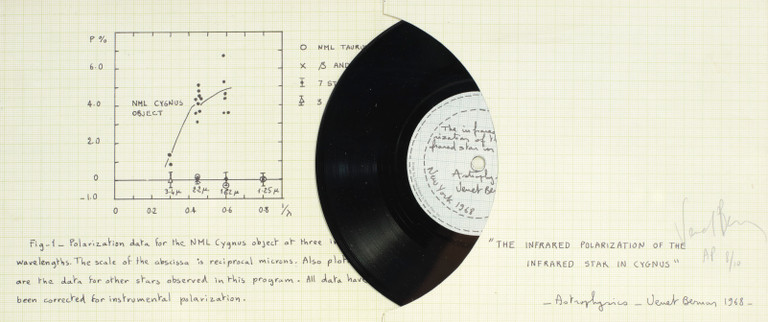 P %
6.0
4.0
2.0
0
-1.0
NML CYGNUS
OBJECT
3.4μ 2.2μ 1.62μ 1.25μ
0 0.2 0.4 0.6 0.8 1/λ
O NML TAURU
X β AND
7 ST
5
Fig-1 - Polarization data for the NML Cygnus object at three in
wavelengths. The scale of the abscissa is reciprocal microns. Also plot
are the data for other stars observed in this program. All data have
been corrected for instrumental polarization.
The infrared
rization of th
frared star in
Astrophy
Venet Be
New York 1968
"THE INFRARED POLARIZATION OF THE
INFRARED STAR IN CYGNUS"
AP 8/10
- Astrophysics - Venet Bernar 1968 -